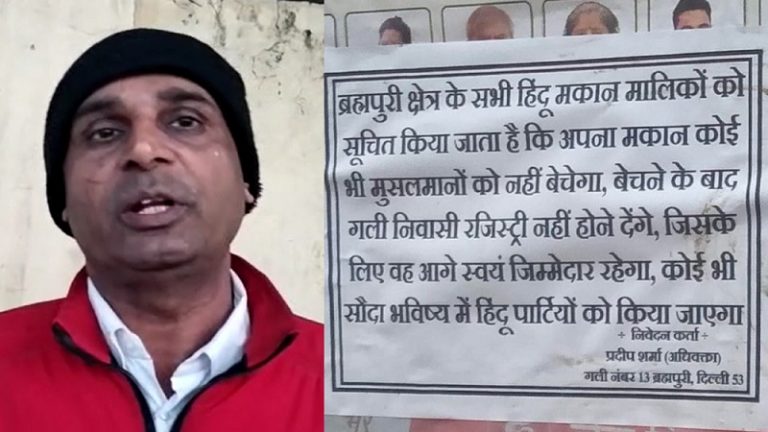 ब्रह्मपुरी क्षेत्र के सभी हिंदू मकान मालिकों को
सूचित किया जाता है कि अपना मकान कोई
भी मुसलमानों को नहीं बेचेगा, बेचने के बाद
गली निवासी रजिस्ट्री नहीं होने देंगे, जिसके
लिए वह आगे स्वयं जिम्मेदार रहेगा, कोई भी
सौदा भविष्य में हिंदू पार्टियों को किया जाएगा
÷ निवेदन कर्ता ÷
प्रदीप शर्मा (अधिवक्ता)
गली नंबर 13 ब्रह्मपुरी, दिल्ली 53